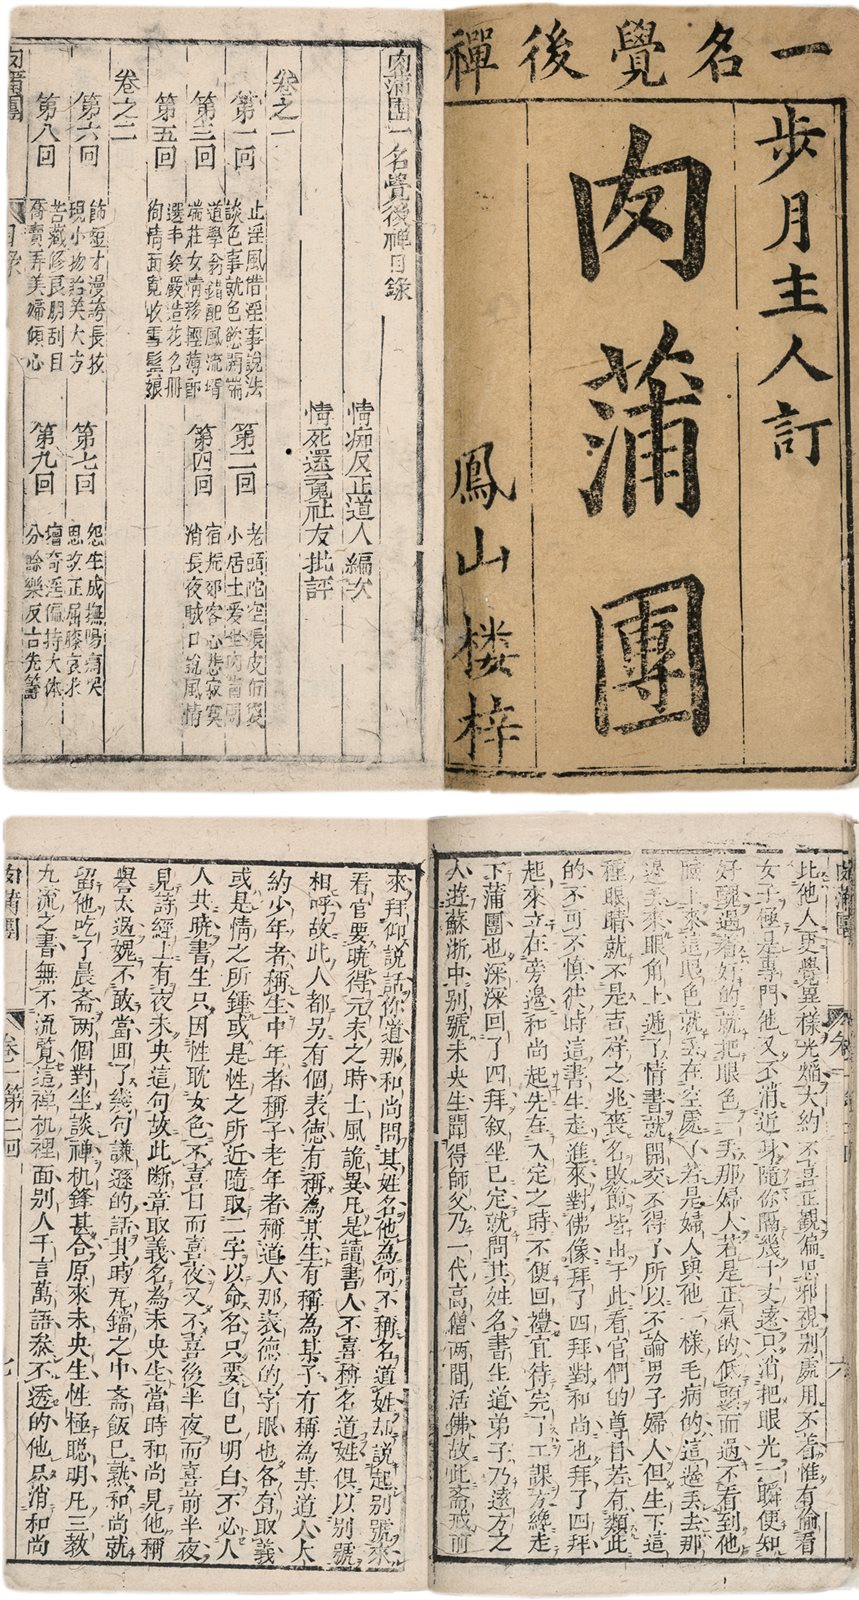 一名覺後禪
步月主人訂
肉蒲團
鳳山楼梓
肉蒲團一名覺後禅目錄
情痴反正道人編次
情死還冤社友批評
卷之一
第一回
止淫風借淫事說法
談色事就色慾開端
第二回
老頭陀空長皮布袋
小居士爱坐肉蒲團
第三回
道學翁錯配風流壻
端莊女情移輕薄郎
第四回
宿荒郊客心悲寂寞
消長夜賊口說風情
第五回
選丰姿嚴造花名冊
狥情面寬收雪鬂娘
卷之二
第六回
飾短才漫誇長技
現小物貽笑大方
第七回
怨生成撫陽痛哭
思改正屈膝哀求
第八回
苦藏修良朋刮目
喬賣弄美婦傾心
第九回
擅奇淫偏持大体
分餘樂反占先籌
肉蒲團
目錄
肉蒲團
六
比他人更覺異樣光熖大約不喜正觀偏思邪視别處用不着惟有偷看
女子極是專門他又不消近身隨你隔幾十丈遠只消把眼光一瞬便知
好醜遇着好的就把眼色一丢那婦人若是正氣的低頭而過不看到他
臉上來這眼色就丢在空處了若是婦人與他一樣毛病的這邊丢去那
邊丢來眼角上遞了情書就開交不得了所以不論男子婦人但生下這
種眼睛就不是吉祥之兆喪名敗節皆由于此看官們的尊目若有類此
的不可不慎彼時這書生走進來對佛像拜了四拜對和尚也拜了四拜
起來立在旁邊和尚起先在入定之時不便回禮直待完了工課方纔走
下蒲團也深深回了四拜叙坐已定就問其姓名書生道弟子乃遠方之
人遊蘇浙中别號未央生聞得師父乃一代高僧两間活佛故此斎戒前
來拜仰說話你道那和尚問其姓名他為何不稱名道姓却說起别號來
看官要暁得元末之時士風詭異凡是讀書人不喜稱名道姓俱以别號
相呼故此人都另有個表徳有稱為某生有稱為某子有稱為某道人大
約少年者稱生中年者稱子老年者稱道人那表德的字眼也各有取義
或是情之所鍾或是性之所近隨取二字以命名只要自已明白不必人
人共暁書生只因性耽女色不喜日而喜夜又不喜後半夜而喜前半夜
見詩經上有夜未央這句故此断章取義名為未央生當時和尚見他稱
譽太過媿不敢當回了幾句謙遜的話其時瓦鐺之中斎飯已熟和尚就
留他吃了晨斎两個對坐談禅机鋒甚合原來未央生性極聪明凡三教
九流之書無不流覧這禅机裡面别人千言萬語叅不透的他只消和尚
肉蒲團
卷一第二回
七